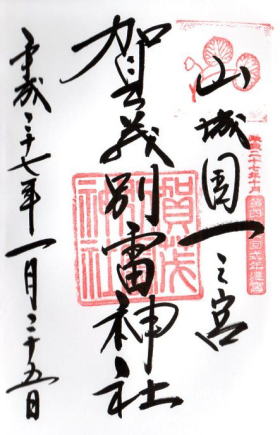 平成二十七年十月
第四十二回式年遷宮
山城国一之宮
賀茂別雷神社
賀茂
別雷
神社
平成二十七年一月二十五日